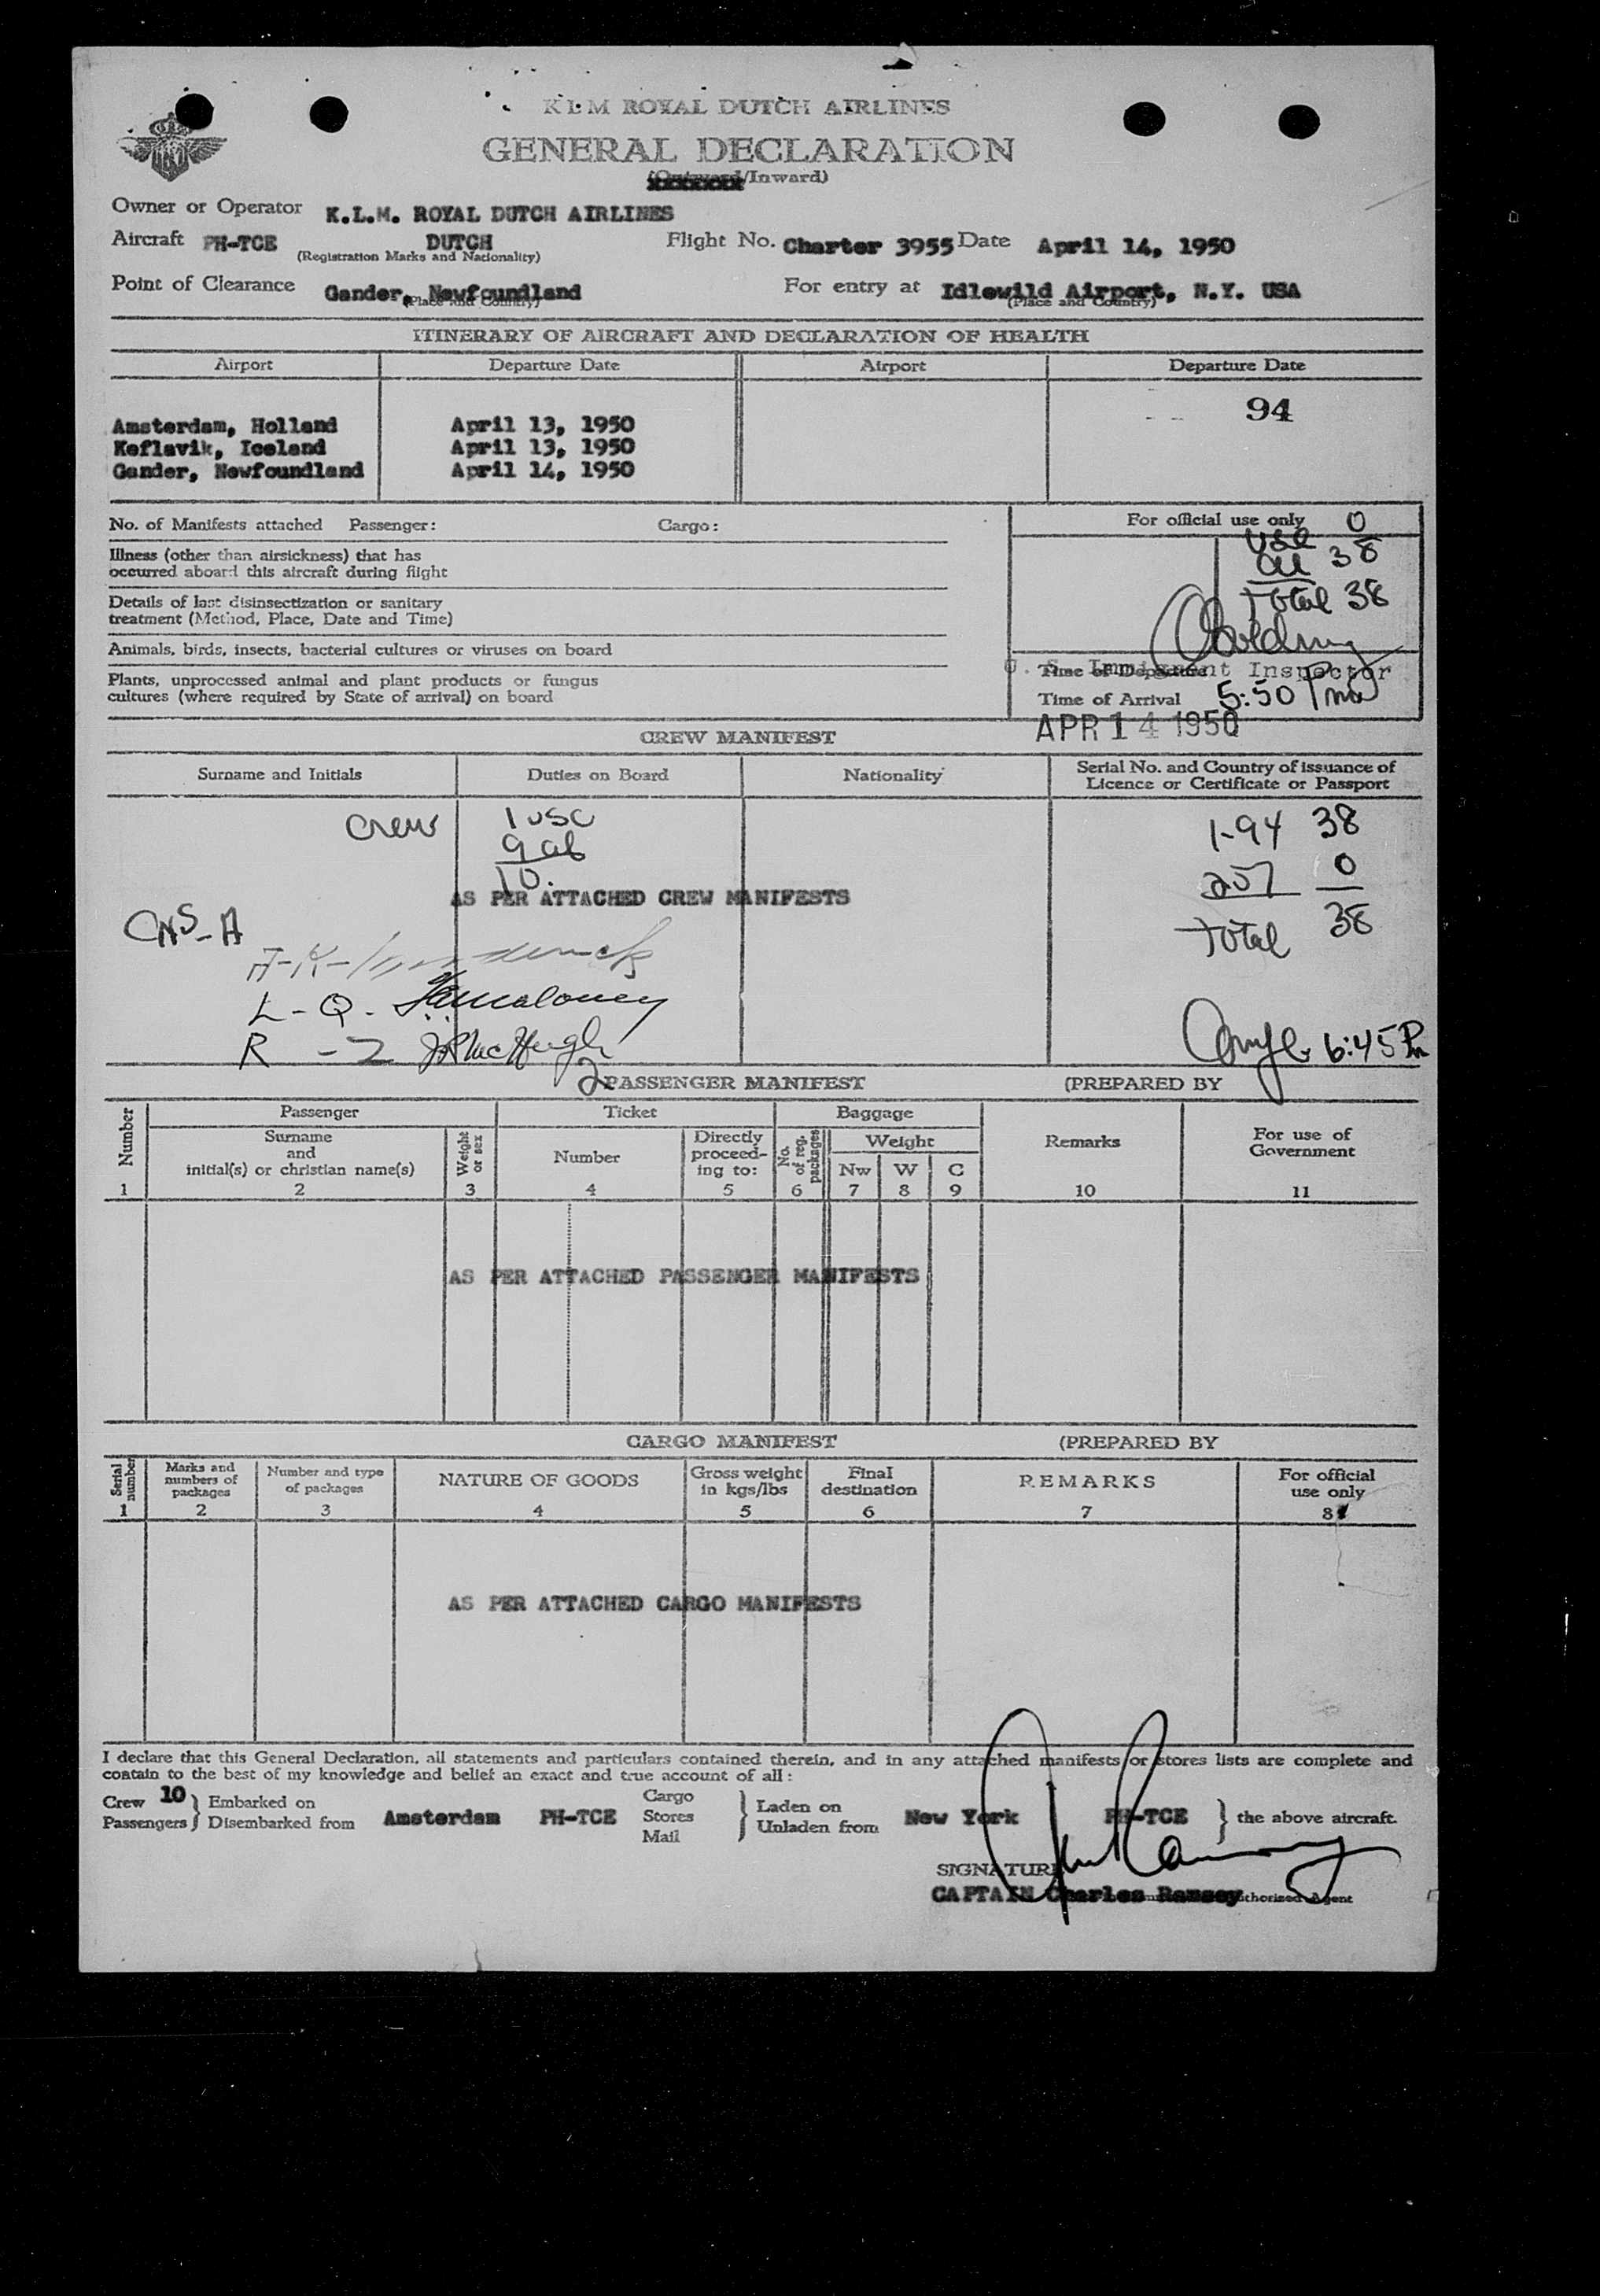 KLM ROYAL DUTCH AIRLINES
GENERAL DECLARATION
(Outward/Inward)
Owner or Operator K.L.M. ROYAL DUTCH AIRLINES
Aircraft PH-TCE DUTCH Flight No. Charter 3955 Date April 14, 1950
(Registration Marks and Nationality)
Point of Clearance Gander, Newfoundland For entry at Idlewild Airport, N.Y. USA
(Place and Country) (Place and Country)
ITINERARY OF AIRCRAFT AND DECLARATION OF HEALTH
Airport Departure Date Airport Departure Date
94
Amsterdam, Holland April 13, 1950
Keflavik, Iceland April 13, 1950
Gander, Newfoundland April 14, 1950
No. of Manifests attached Passenger: Cargo:
For official use only
USC 0
al 38
Total 38
Illness (other than airsickness) that has
occurred aboard this aircraft during flight
Details of last disinsectization or sanitary
treatment (Method, Place, Date and Time)
Animals, birds, insects, bacterial cultures or viruses on board
Plants, unprocessed animal and plant products or fungus
cultures (where required by State of arrival) on board
U. S. Immigrant Inspector
Time of Departure
Time of Arrival 5:50 Pm
APR 14 1950
CREW MANIFEST
Surname and Initials Duties on Board Nationality Serial No. and Country of issuance of
Licence or Certificate or Passport
Crew 1 USC
9 al
10.
1-94 38
257 0
Total 38
AS PER ATTACHED CREW MANIFESTS
A-K-
L-Q- Maloney
R-Z McHugh
6:45 Pm
2
PASSENGER MANIFEST (PREPARED BY
Number Passenger Ticket Baggage Remarks For use of
Government
Surname
and
initial(s) or christian name(s)
Weight
or sex
Number
Directly
proceed-
ing to:
No.
of reg.
packages
Weight
Nw W C
1 2 3 4 5 6 7 8 9 10 11
AS PER ATTACHED PASSENGER MANIFESTS
CARGO MANIFEST (PREPARED BY
Serial
number
Marks and
numbers of
packages
Number and type
of packages
NATURE OF GOODS
Gross weight
in kgs/lbs
Final
destination
REMARKS
For official
use only
1 2 3 4 5 6 7 8
AS PER ATTACHED CARGO MANIFESTS
I declare that this General Declaration, all statements and particulars contained therein, and in any attached manifests or stores lists are complete and
contain to the best of my knowledge and belief an exact and true account of all:
Crew 10 Embarked on
Passengers Disembarked from Amsterdam PH-TCE
Cargo
Stores
Mail
Laden on
Unladen from New York PH-TCE the above aircraft.
SIGNATURE
CAPTAIN Charles Ramsey Authorized Agent